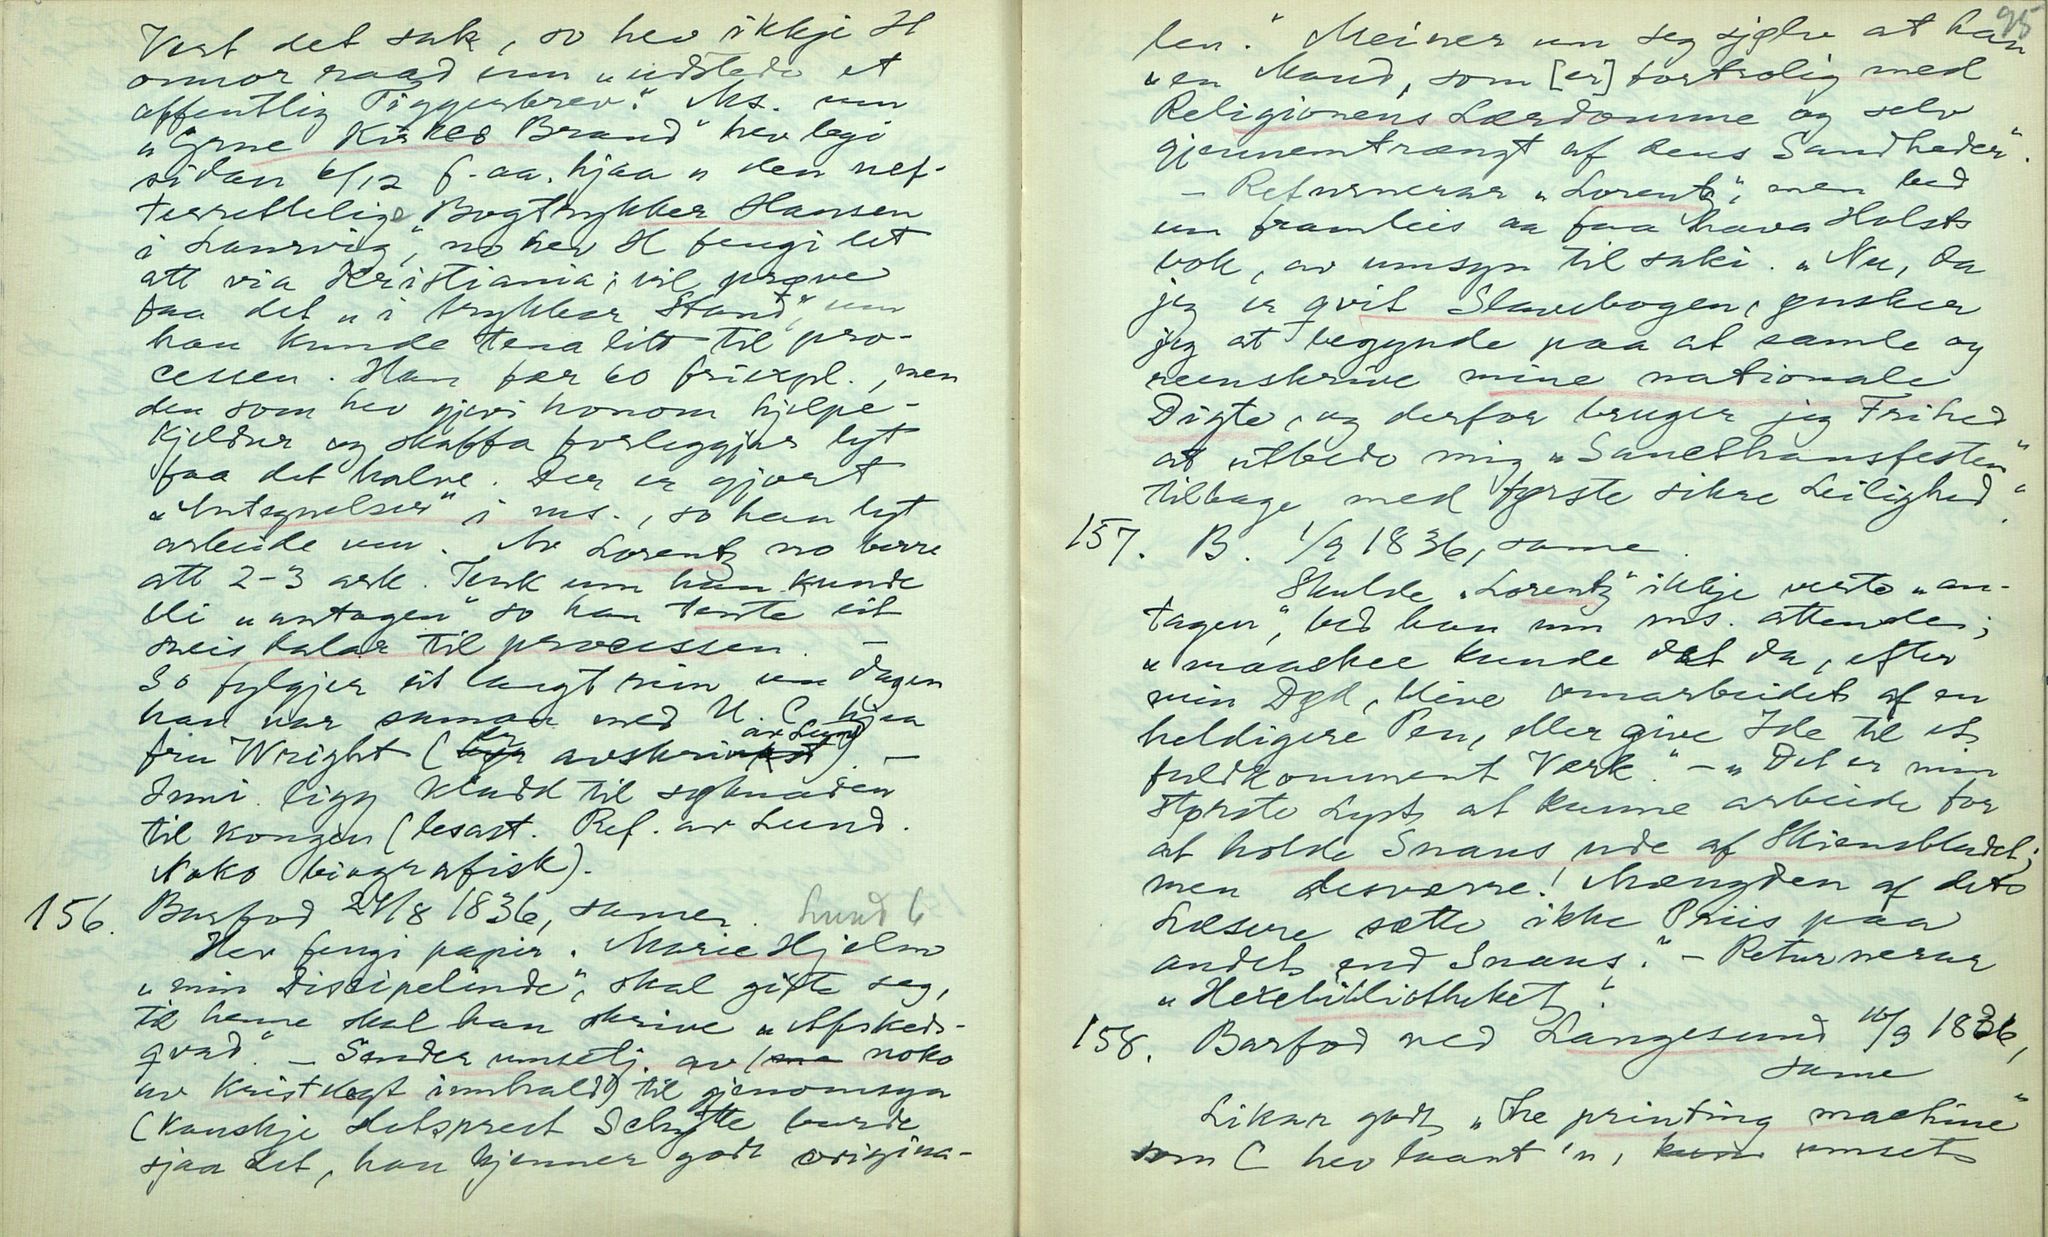 Vert det sak, so hev ikkje H
onnor raad enn „udstede et
offentlig Tiggerbrev." Ms. um
„Erne Kirkes Brand" hev legi
sidan 6/12 f. aa. hjaa „den nef-
terrettelige Bogtrykker Hansen
i Laurvig," no hev H fengi let
att via Kristiania; vil prøve
faa det „i trykbar Stand," um
han kunde tena litt til pro-
cessen. Han fær 60 friexpl., men
den som hev gjevi honom hjelpe-
kjeldur og skaffa forleggjar lyt
faa det halve. Der er gjort
„Antegnelser" i ms., so han lyt
arbeide um. Av Lorentz no berre
att 2-3 ark. Tenk um han kunde
bli „antagen" so han tente eit
neis dalar til processen. —
So fylgjer eit langt rim um dagen
han var saman med U. C. hjaa
fru Wright (er avskrive av Lund). —
Inni ligg kladd til søknaden
til kongen (lesart. Ref. av Lund.
Noko biografisk).
156. Barfod 24/8 1836, same. Lund 6
Hev fengi papir. Marie Hjelm
„min Discipelinde", skal gifta seg,
til henne skal han skrive „Afskeds-
qvad". — Sender umsetj. av noko
av kristelegt innhald) til gjenomsyn
(kanskje slotsprest Schytte burde
sjaa det, han kjenner godt origina-
95
len." Meiner um seg sjølv at han
„en Mand, som [er] fortrolig med
Religionens Lærdomme og selv
gjennemtrængt af dens Sandheder".
— Returnerar „Lorentz", men bed
um framleis aa faa hava Holsts
bok, av umsyn til saki. „Nu, da
jeg er qvit Slavebogen, ønsker
jeg at begynde paa at samle og
reenskrive mine nationale
Digte, og derfor bruger jeg Frihed
at udbede mig „Sancthansfesten"
tilbage med første sikre Leilighed."
157. B. 1/9 1836, same.
Skulde „Lorentz" ikkje verte „an-
tagen", bed han um ms. attende;
„maaskee kunde det da, efter
min Død, blive omarbeidet af en
heldigere Pen, eller give Ide til et
fuldkomment Værk." — „Det er min
største Lyst at kunne arbeide for
at holde Snaus ude af Skiensbladet;
men desværre! Mængden af dets
Læsere sætte ikke Priis paa
andet end Snaus." — Returnerar
„Hexebibliotheket".
158. Barfod ved Langesund 10/9 1836,
same
Likar godt „The printing machine"
som C hev laant 'n, umset